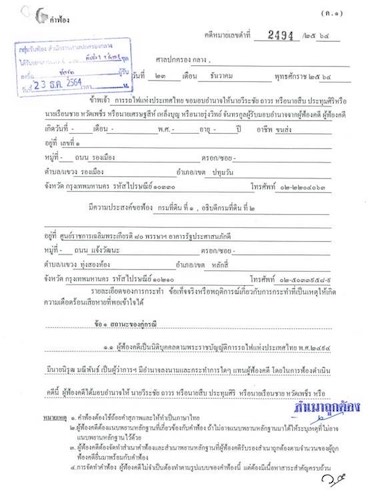 (ค.๑)
คำฟ้อง
คดีหมายเลขดำที่ 2494 /๒๕ ๖๔
ศาลปกครอง กลาง
วันที่ ๒๓ เดือน ธันวาคม พุทธศักราช ๒๕ ๖๔
วันที่ 23 ธ.ค. 2564
ข้าพเจ้า การรถไฟแห่งประเทศไทย ขอมอบอำนาจให้นายวีระชัย ถาวร หรือนายสืบ ประทุมศิริหรือ
นายเรือนชาย หวัดเพ็ชร หรือนายเศรษฐสิทธิ์ เหล็งบุญ หรือนายรุ่งวิทย์ จันทรกูลผู้รับมอบอำนาจจากผู้ฟ้องคดี ผู้ฟ้องคดี
เกิดวันที่ - เดือน - พ.ศ. - อายุ - ปี อาชีพ ขนส่ง
อยู่ที่ เลขที่ ๑
หมู่ที่ - ถนน รองเมือง ตรอก/ซอย -
ตำบล/แขวง รองเมือง อำเภอ/เขต ปทุมวัน
จังหวัด กรุงเทพมหานคร รหัสไปรษณีย์ ๑๐๓๓๐ โทรศัพท์ ๐๒-๒๒๐๔๐๖๓
มีความประสงค์ขอฟ้อง กรมที่ดิน ที่ ๑ , อธิบดีกรมที่ดิน ที่ ๒
อยู่ที่ ศูนย์ราชการเฉลิมพระเกียรติ ๘๐ พรรษาฯ อาคารรัฐประศาสนภักดี
หมู่ที่ - ถนน แจ้งวัฒนะ ตรอก/ซอย -
ตำบล/แขวง ทุ่งสองห้อง อำเภอ/เขต หลักสี่
จังหวัด กรุงเทพมหานคร รหัสไปรษณีย์ ๑๐๒๑๐ โทรศัพท์ ๐๒-๕๐๓๓๙๕๔-๕
รายละเอียดของการกระทำ ข้อเท็จจริงหรือพฤติการณ์เกี่ยวกับการกระทำที่เป็นเหตุให้เกิด
ความเดือดร้อนเสียหายที่พอเข้าใจได้
ข้อ ๑ สถานะของคู่กรณี
๑.๑ ผู้ฟ้องคดีเป็นนิติบุคคลตามพระราชบัญญัติการรถไฟแห่งประเทศไทย พ.ศ.๒๔๙๔
มีนายนิรุฒ มณีพันธ์ เป็นผู้ว่าการฯ มีอำนาจลงนามและกระทำการใดๆ แทนผู้ฟ้องคดี โดยในการฟ้องดำเนิน
คดีนี้ ผู้ฟ้องคดีได้มอบอำนาจให้ นายวีระชัย ถาวร หรือนายสืบ ประทุมศิริ หรือนายเรือนชาย หวัดเพ็ชร หรือ
สำเนาถูกต้อง
หมายเหตุ ๑. คำฟ้องต้องใช้ถ้อยคำสุภาพและให้ทำเป็นภาษาไทย
๒.ผู้ฟ้องคดีต้องแนบพยานหลักฐานที่เกี่ยวข้องกับคำฟ้อง ถ้าไม่อาจแนบพยานหลักฐานมาได้ให้ระบุเหตุที่ไม่อาจ
แนบพยานหลักฐานไว้ด้วย
๓.ผู้ฟ้องคดีต้องจัดทำสำเนาคำฟ้องและสำเนาพยานหลักฐานที่ผู้ฟ้องคดีรับรองสำเนาถูกต้องตามจำนวนของผู้ถูก
ฟ้องคดียื่นมาพร้อมกับคำฟ้อง
๔.การจัดทำคำฟ้อง ผู้ฟ้องคดีไม่จำเป็นต้องทำตามรูปแบบของคำฟ้องนี้ แต่ต้องมีเนื้อหาสาระสำคัญครบถ้วน